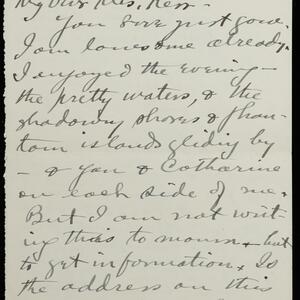 My Dear Mrs. Kerr —
You are just gone.
I am lonesome already.
I enjoyed the evening —
the pretty waters, & the
shadowy shores & phan-
tom islands gliding by
— & you & Catharine
on each side of me.
But I am not writ-
ing this to mourn, but
to get information. Is
the address on this